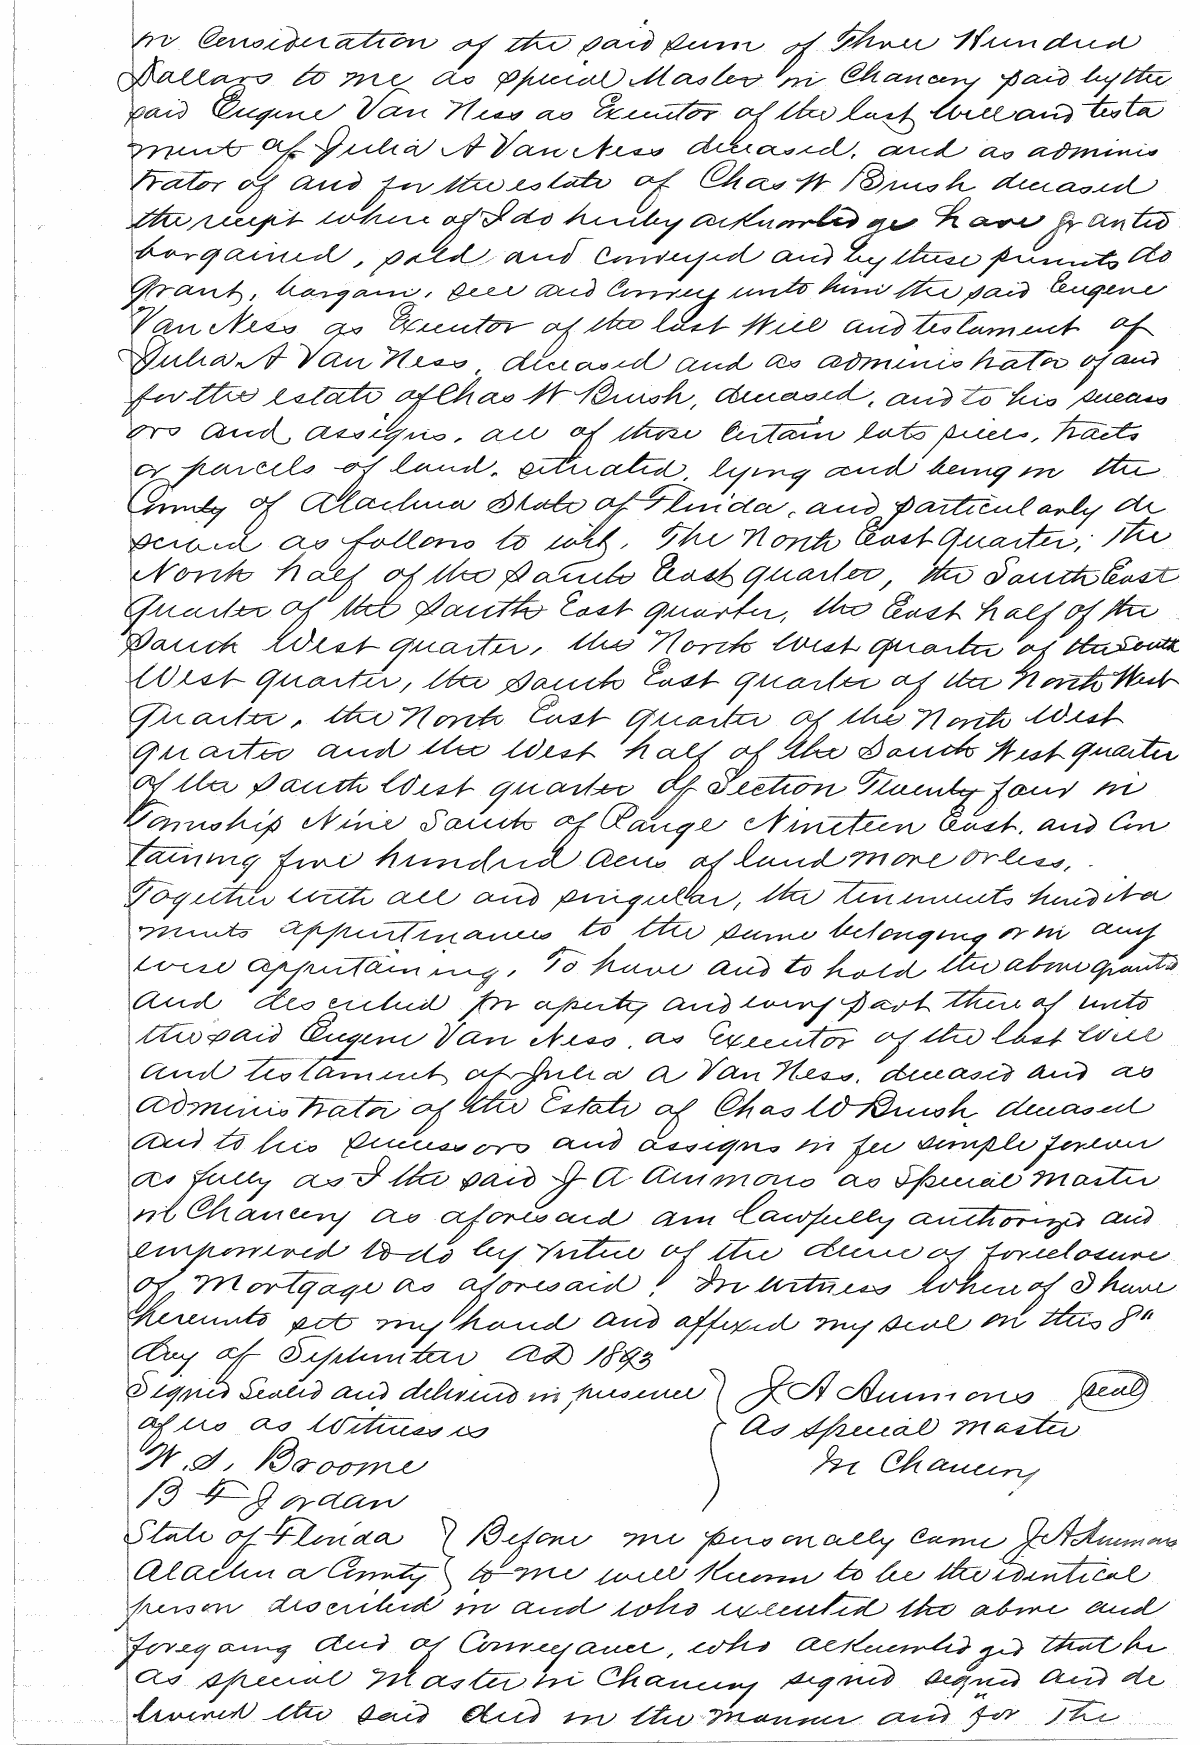 in Consideration of the said sum of Three Hundred
Dollars to me as special Master in Chancery paid by the
said Eugene Van Ness as Executor of the last Will and testa
ment of Julia A Van Ness deceased, and as adminis
trator of and for the estate of Chas W Brush deceased
the receipt where of I do hereby acknowledge have granted
bargained, sold and conveyed and by these presents do
Grant, bargain, sell and Convey unto him the said Eugene
Van Ness as Executor of the last Will and testament of
Julia A Van Ness, deceased and as administrator of and
for the estate of Chas W Brush, deceased, and to his success
ors and assigns, all of those certain lots pieces, tracts
or parcels of land, situated, lying and being in the
County of Alachua State of Florida, and particularly de
scribed as follows to wit, The North East Quarter, The
North half of the South East quarter, the South East
Quarter of the South East quarter, the East half of the
South West quarter, the North West quarter of the South
West quarter, the South East quarter of the North West
Quarter, the North East quarter of the North West
quarter and the West half of the South West quarter
of the South West quarter of Section Twenty four in
Township Nine South of Range Nineteen East, and Con
taining five hundred acres of land more or less,
Together with all and singular, the tenements heredita
ments appurtenances to the same belonging or in any
wise appertaining, To have and to hold the above granted
and described property and every part there of unto
the said Eugene Van Ness, as Executor of the last Will
and testament of Julia A Van Ness, deceased and as
administrator of the Estate of Chas W Brush, deceased
and to his successors and assigns in fee simple forever
as fully as I the said J A Ammons as Special Master
in Chancery as aforesaid am lawfully authorized and
empowered to do by virtue of the decree of foreclosure
of Mortgage as aforesaid. In witness whereof I have
hereunto set my hand and affixed my seal on this 8"
day of September AD 1893
Signed Sealed and delivered in presence } J A Ammons (seal)
of us as Witnesses As special Master
W. S. Broome In Chancery
B F Jordan
State of Florida } Before me personally came J A Ammons
Alachua County } to me well known to be the identical
person described in and who executed the above and
foregoing deed of Conveyance, who acknowledged that he
as special Master in Chancery signed signed and de
livered the said deed in the manner and for The